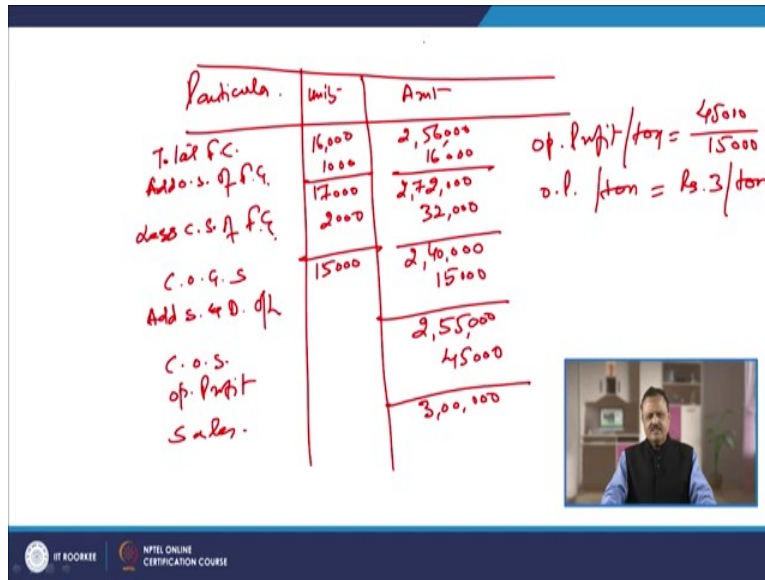 Particular. Units Amt
Total F.C. 16,000 2,56,000
Add o.s. of f.G. 1000 16000
17000 2,72,000
Less C.S. of f.G. 2000 32,000
C.O.G.S 15000 2,40,000
Add S. & D. o/h 15000
2,55,000
C.O.S.
op. Profit 45000
Sales. 3,00,000
op. Profit/ton = 45000
15000
o.P. /ton = Rs. 3/ton
IIT ROORKEE
NPTEL ONLINE
CERTIFICATION COURSE